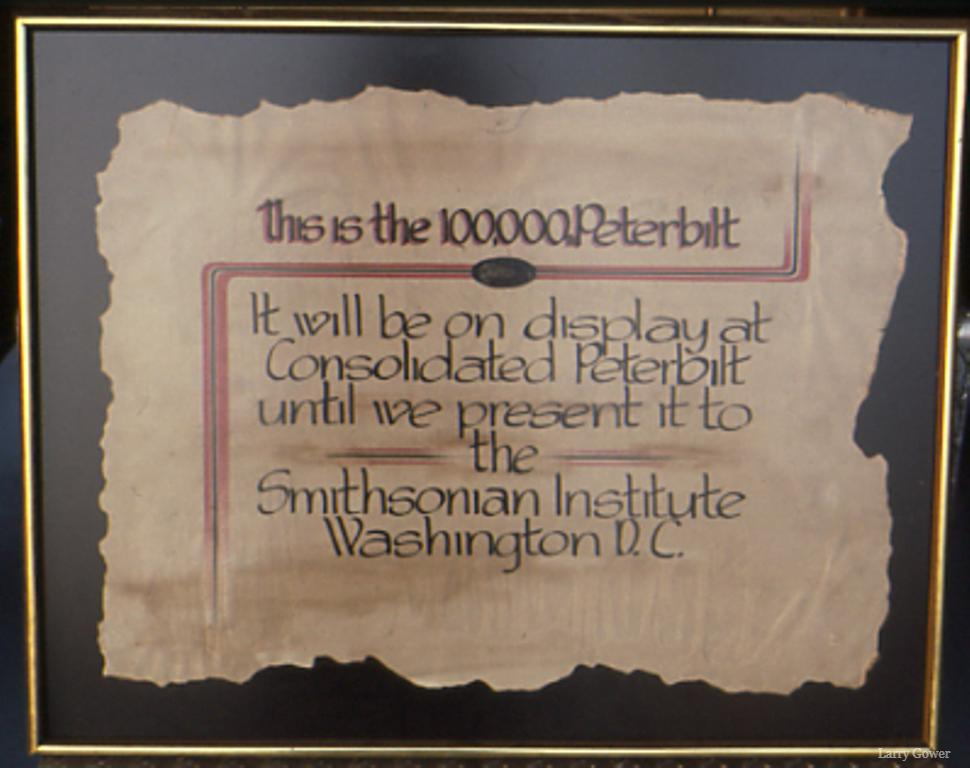 This is the 100,000 Peterbilt
It will be on display at
Consolidated Peterbilt
until we present it to
the
Smithsonian Institute
Washington D.C.
Larry Gower